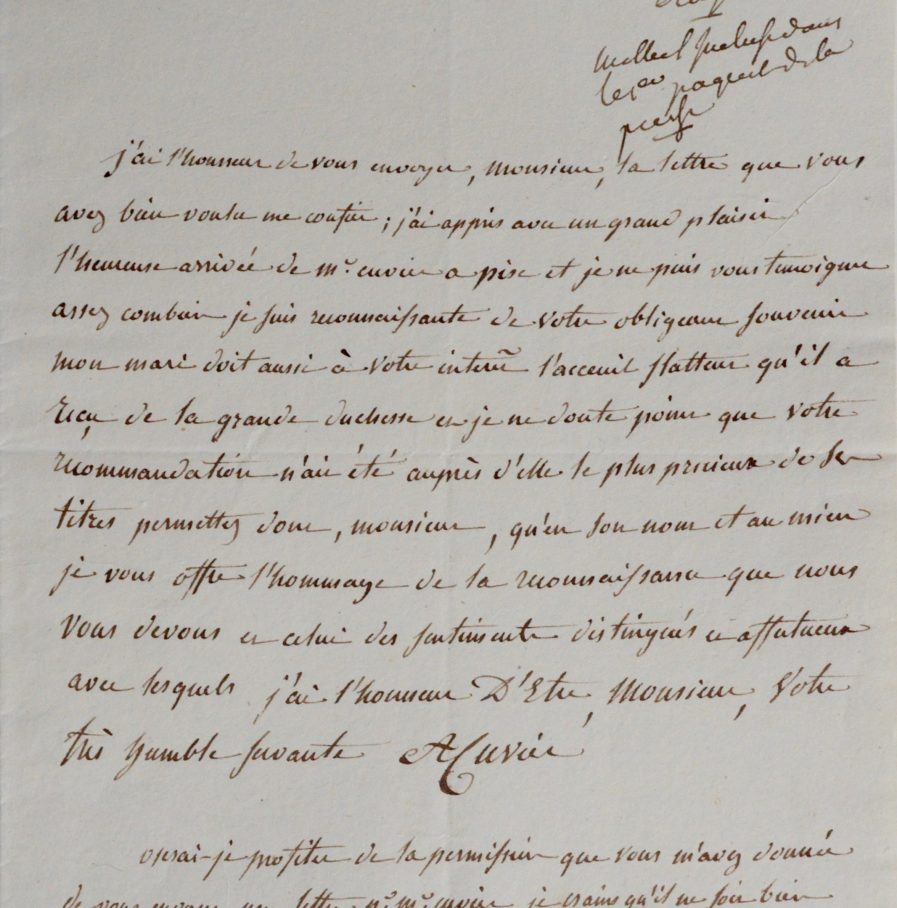 dans
le paquet de la
j'ai l'honneur de vous envoyer, monsieur, la lettre que vous
avez bien voulu me confier; j'ai appris avec un grand plaisir
l'heureuse arrivée de mr. cuvier a pise et je ne puis vous temoigner
assez combien je suis reconnaissante de votre obligeant souvenir
mon mari doit aussi à votre interêt l'acceuil flatteur qu'il a
reçu de la grande duchesse et je ne doute point que votre
recommandation n'ait été auprès d'elle le plus precieux de ses
titres permettez donc, monsieur, qu'en son nom et au mien
je vous offre l'hommage de la reconnaissance que nous
vous devons et celui des sentiments distingués et affectueux
avec lesquels j'ai l'honneur D'Etre, Monsieur, Votre
très humble servante ACuvier
oserai-je profiter de la permission que vous m'avez donnée
de vous envoyer une lettre pr. mr. cuvier je crains qu'il ne soit bien